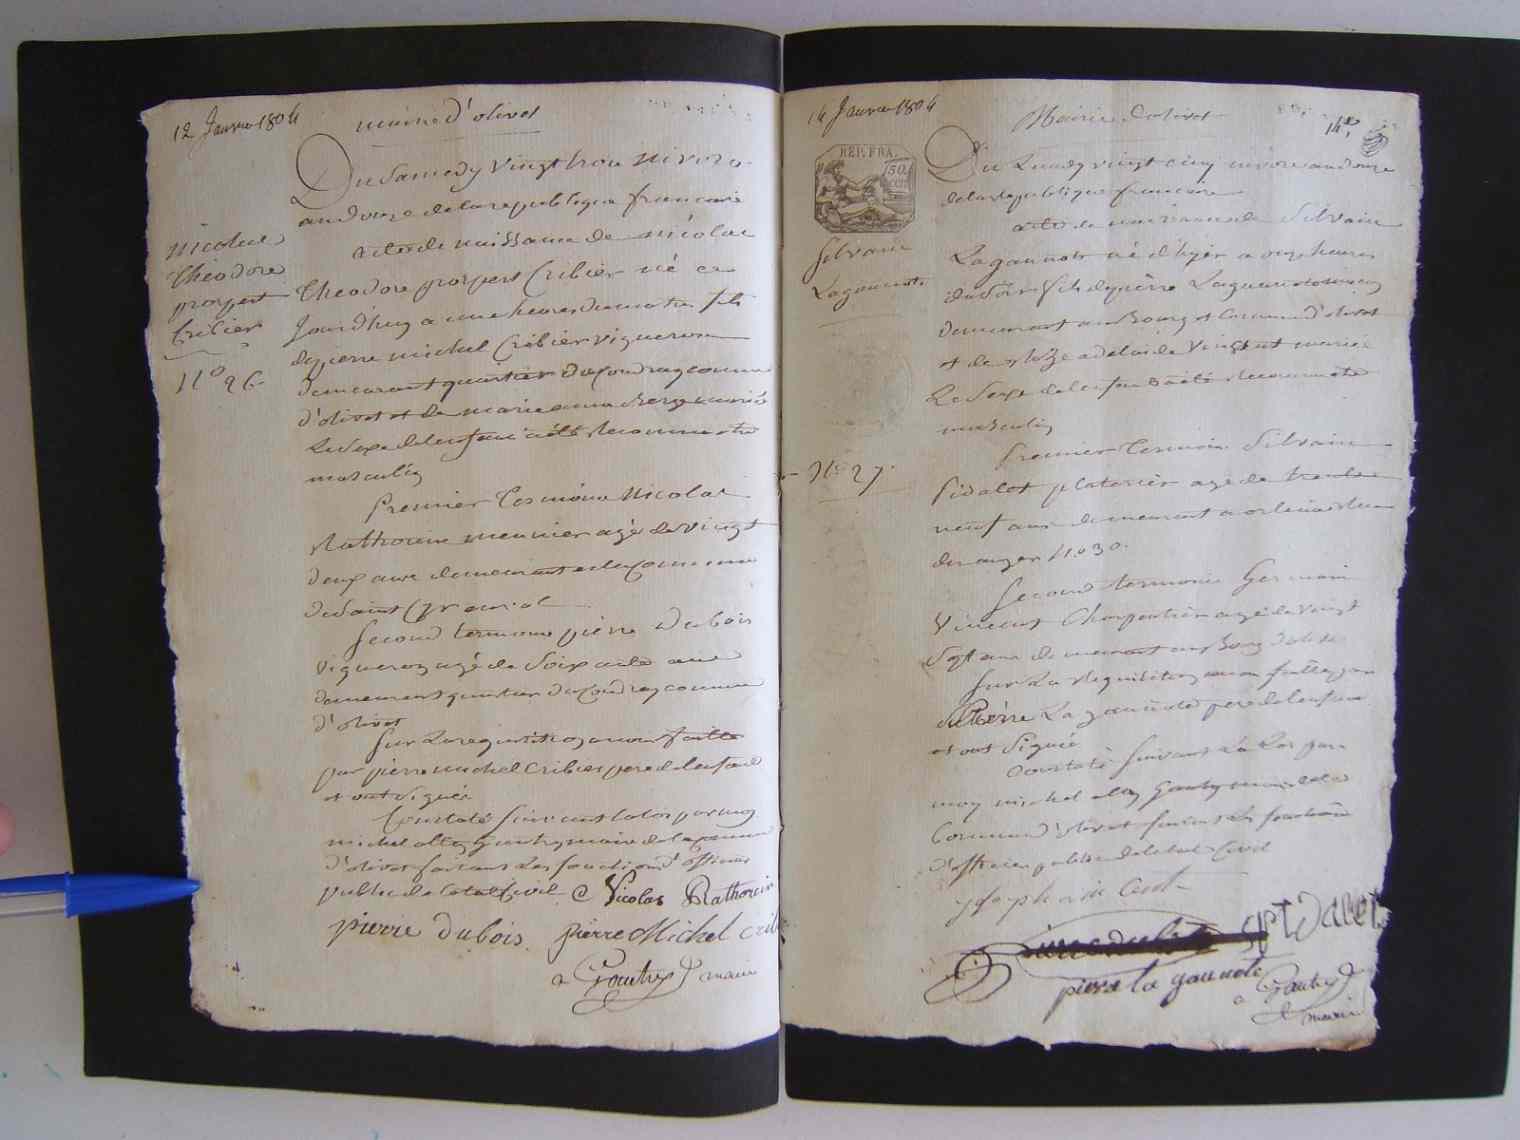 12 Janvier 1804
mairie d'olivet
Du Samedy vingt trois nivose
an douze de la republique francaise
acte de naissance de nicolas
Theodore prospert Cribier né ce
Jourdhuy a une heure du matin fils
de pierre michel Cribier vigneron
demeurant quartier du Coudray commune
d'olivet et de marie anne mariés
Le Sexe de lenfant a été Reconnu etre
masculin
Premier Tesmoins Nicolas
Rathouin meunier agé de vingt
deux ans demeurant a la Commune
de Saint
Second tesmoins pierre Dubois
vigneron agé de Soixante ans
demeurant quartier du Coudray commune
d'olivet
Sur La requisition a nous faitte
par pierre michel Cribier pere de lenfant
et ont Signés
Constaté Suivant la loi par moy
michel Gautry maire de la Commune
d'olivet faisant Les fonctions d'officier
public de l'etat Civil
Nicolas Rathouin
pierre Dubois pierre Michel Crib
Gautry maire
nicolas
theodore
prospert
Cribier
N° 26.
14 Janvier 1804
Mairie dolivet
14
REP. FRA.
50
Du Lundy vingt cinq nivose an douze
de la republique francaise
acte de naissance de Silvain
Lagaunote né d'hyer a onze heures
du Soir fils de pierre Lagaunote
demeurant au Bourg et Commune d'olivet
et de adelaide vingt mariés
Le Sexe de lenfant a été Reconnu etre
masculin
Premier Tesmoins Silvain
platrier agé de trente
neuf ans demeurant a orleans Rue
N° 30.
Second tesmoins Germain
Vincent Charpentier agé de vingt
Sept ans demeurant au Bourg dolivet
Sur La Requisition a nous faitte par
Pierre La gaunote pere de lenfant
et ont Signés
Constaté Suivant La Loi par
moy michel Gautry maire de la
Commune d'olivet faisant les fonctions
d'officier public de letat Civil
pierre la gaunote
Gautry
maire
Silvain
Lagaunote
N° 27.